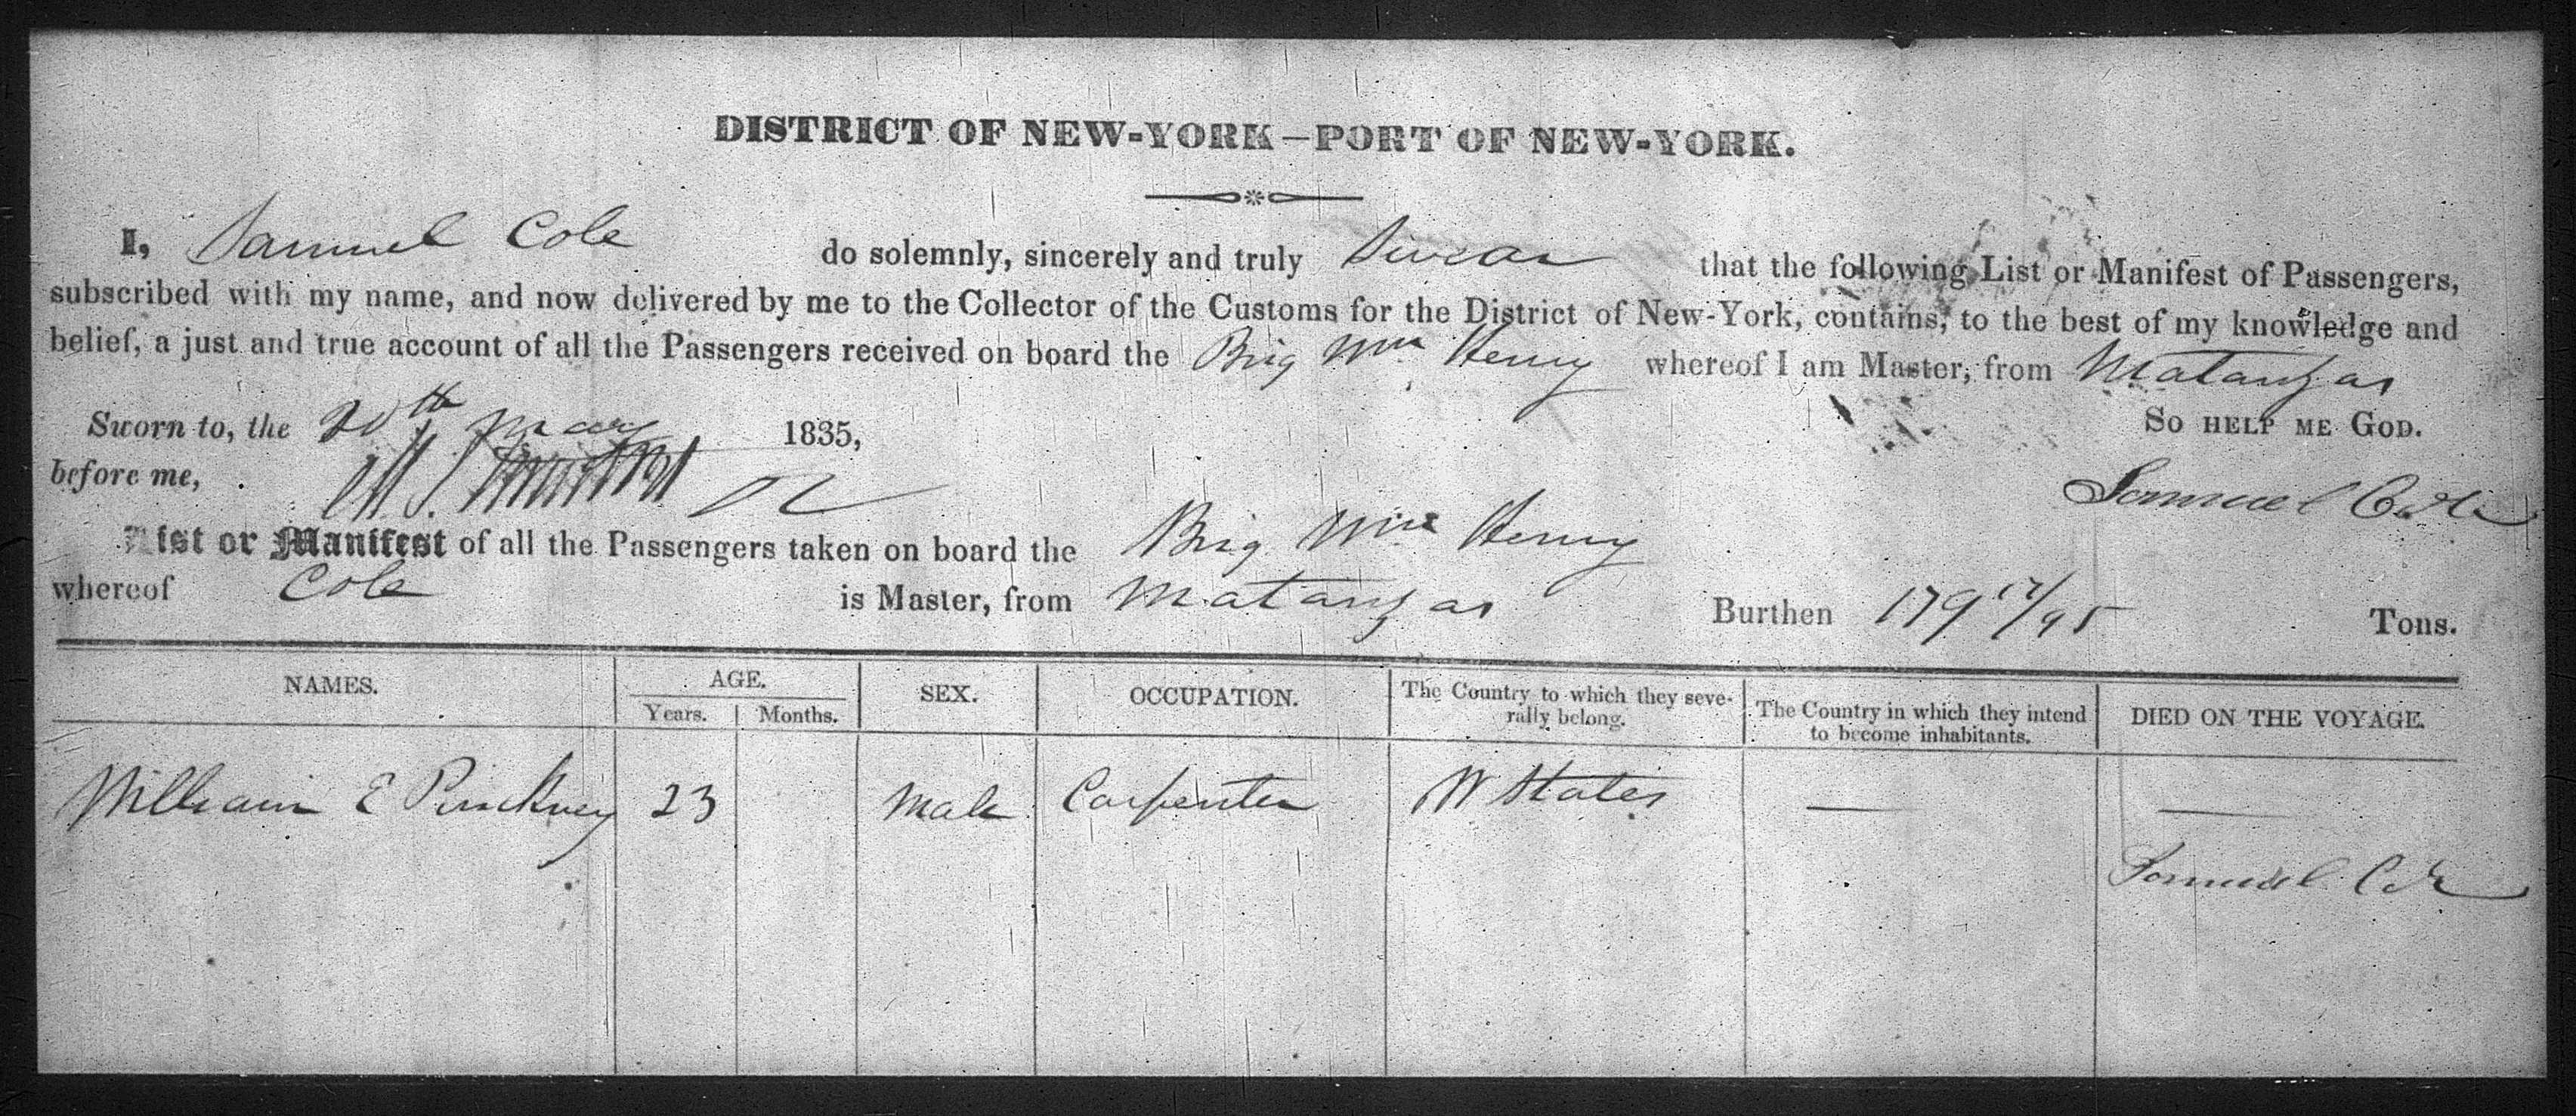 DISTRICT OF NEW-YORK—PORT OF NEW-YORK.
I, Samuel Cole do solemnly, sincerely and truly Swear that the following List or Manifest of Passengers,
subscribed with my name, and now delivered by me to the Collector of the Customs for the District of New-York, contains, to the best of my knowledge and
belief, a just and true account of all the Passengers received on board the Brig Wm Henry whereof I am Master, from Matanzas
Sworn to, the 20th May 1835, So help me God.
before me, Samuel Cole
List or Manifest of all the Passengers taken on board the Brig Wm Henry
whereof Cole is Master, from Matanzas Burthen 179 17/95 Tons.
NAMES. AGE. SEX. OCCUPATION. The Country to which they seve-
rally belong. The Country in which they intend
to become inhabitants. DIED ON THE VOYAGE.
Years. Months.
William E Pinckney 23 Male Carpenter U States — —
Samuel Cole